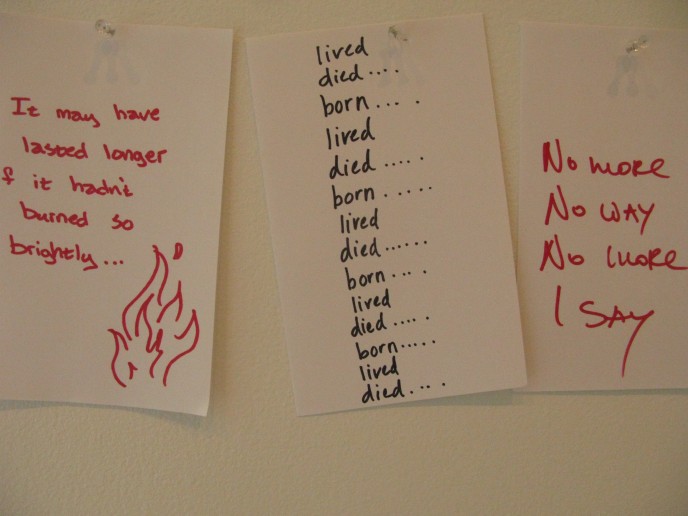 It may have
lasted longer
f it hadn't
burned so
brightly...
lived
died....
born....
lived
died.....
born.....
lived
died.....
born....
lived
died....
born.....
lived
died....
No more
No way
No more
I say